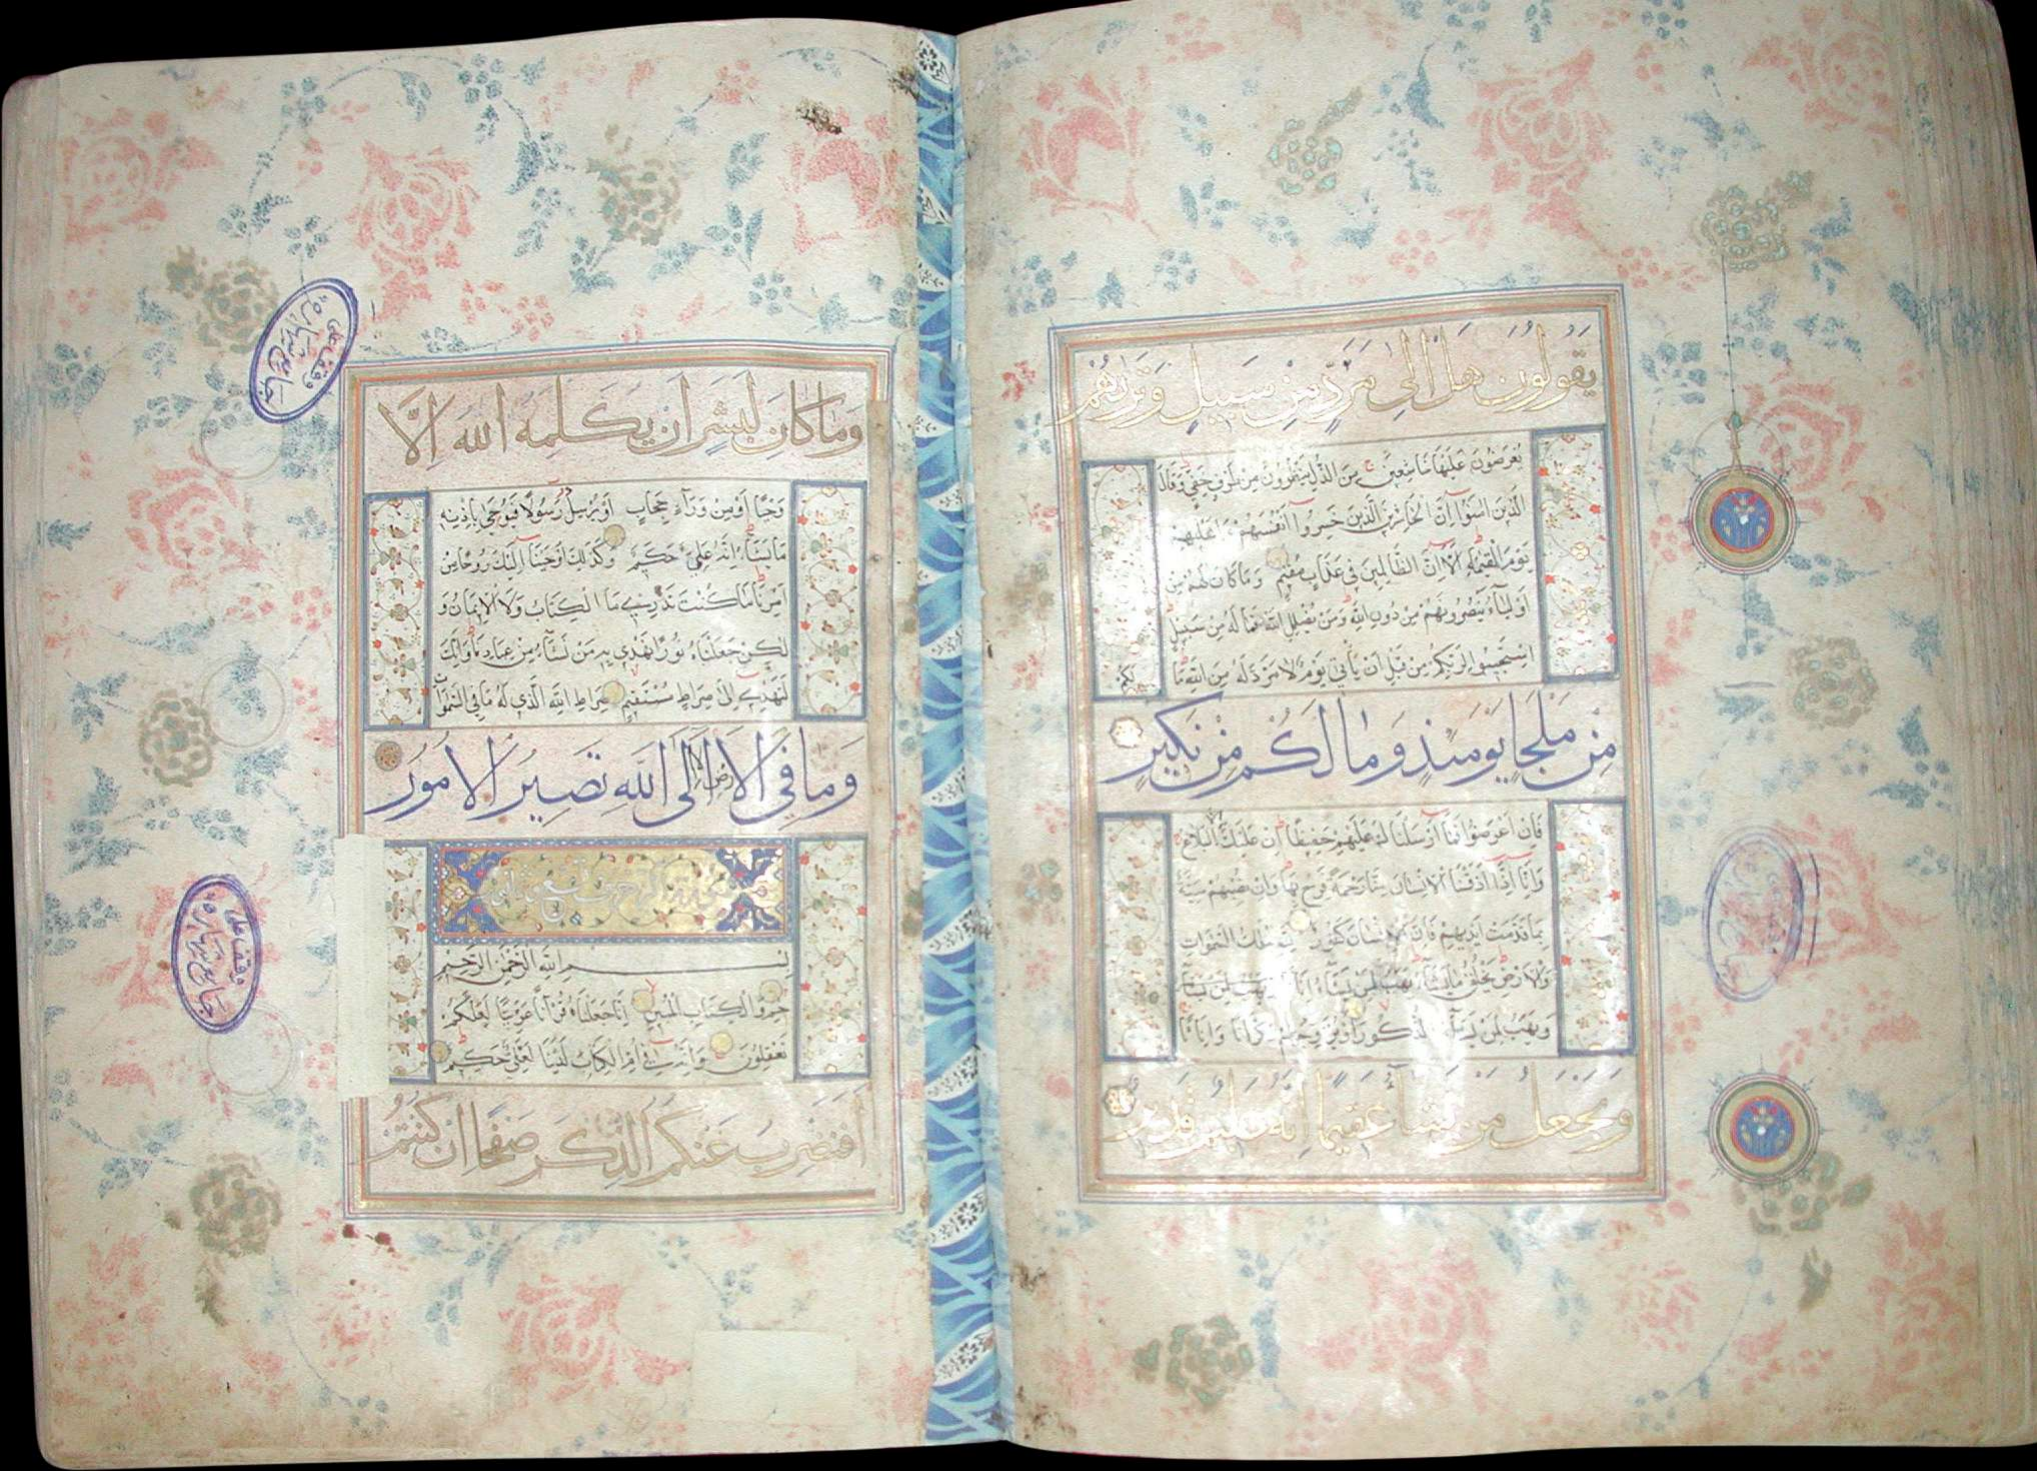 يَقُولُونَ هَلْ اِلٰى مَرَدٍّ مِنْ سَبِيلٍ وَتَرٰيهُمْ
يُعْرَضُونَ عَلَيْهَا خَاشِعِينَ مِنَ الذُّلِّ يَنْظُرُونَ مِنْ طَرْفٍ خَفِيٍّ وَقَالَ
الَّذِينَ اٰمَنُوا اِنَّ الْخَاسِرِينَ الَّذِينَ خَسِرُوا اَنْفُسَهُمْ وَاَهْلِيهِمْ
يَوْمَ الْقِيٰمَةِ اَلَا اِنَّ الظَّالِمِينَ فِي عَذَابٍ مُقِيمٍ وَمَا كَانَ لَهُمْ مِنْ
اَوْلِيَاءَ يَنْصُرُونَهُمْ مِنْ دُونِ اللّٰهِ وَمَنْ يُضْلِلِ اللّٰهُ فَمَا لَهُ مِنْ سَبِيلٍ
اِسْتَجِيبُوا لِرَبِّكُمْ مِنْ قَبْلِ اَنْ يَأْتِيَ يَوْمٌ لَا مَرَدَّ لَهُ مِنَ اللّٰهِ مَا
لَكُمْ
مِنْ مَلْجَأٍ يَوْمَئِذٍ وَمَا لَكُمْ مِنْ نَكِيرٍ
فَاِنْ اَعْرَضُوا فَمَا اَرْسَلْنَاكَ عَلَيْهِمْ حَفِيظًا اِنْ عَلَيْكَ اِلَّا الْبَلَاغُ
وَاِنَّا اِذَا اَذَقْنَا الْاِنْسَانَ مِنَّا رَحْمَةً فَرِحَ بِهَا وَاِنْ تُصِبْهُمْ سَيِّئَةٌ
بِمَا قَدَّمَتْ اَيْدِيهِمْ فَاِنَّ الْاِنْسَانَ كَفُورٌ لِلّٰهِ مُلْكُ السَّمٰوَاتِ
وَالْاَرْضِ يَخْلُقُ مَا يَشَاءُ يَهَبُ لِمَنْ يَشَاءُ اِنَاثًا
وَيَهَبُ لِمَنْ يَشَاءُ الذُّكُورَ اَوْ يُزَوِّجُهُمْ ذُكْرَانًا وَاِنَاثًا
وَيَجْعَلُ مَنْ يَشَاءُ عَقِيمًا اِنَّهُ عَلِيمٌ قَدِيرٌ
وَمَا كَانَ لِبَشَرٍ اَنْ يُكَلِّمَهُ اللّٰهُ اِلَّا
وَحْيًا اَوْ مِنْ وَرَاءِ حِجَابٍ اَوْ يُرْسِلَ رَسُولًا فَيُوحِيَ بِاِذْنِهِ
مَا يَشَاءُ اِنَّهُ عَلِيٌّ حَكِيمٌ وَكَذٰلِكَ اَوْحَيْنَا اِلَيْكَ رُوحًا مِنْ
اَمْرِنَا مَا كُنْتَ تَدْرِي مَا الْكِتَابُ وَلَا الْاِيمَانُ وَ
لٰكِنْ جَعَلْنَاهُ نُورًا نَهْدِي بِهِ مَنْ نَشَاءُ مِنْ عِبَادِنَا وَاِنَّكَ
لَتَهْدِي اِلٰى صِرَاطٍ مُسْتَقِيمٍ صِرَاطِ اللّٰهِ الَّذِي لَهُ مَا فِي السَّمٰوَاتِ
وَمَا فِي الْاَرْضِ اَلَا اِلَى اللّٰهِ تَصِيرُ الْاُمُورُ
بِسْمِ اللّٰهِ الرَّحْمٰنِ الرَّحِيمِ
حٰمٓ وَالْكِتَابِ الْمُبِينِ اِنَّا جَعَلْنَاهُ قُرْاٰنًا عَرَبِيًّا لَعَلَّكُمْ
تَعْقِلُونَ وَاِنَّهُ فِي اُمِّ الْكِتَابِ لَدَيْنَا لَعَلِيٌّ حَكِيمٌ
اَفَنَضْرِبُ عَنْكُمُ الذِّكْرَ صَفْحًا اَنْ كُنْتُمْ
وقف على
جامع
وقف على
جامع